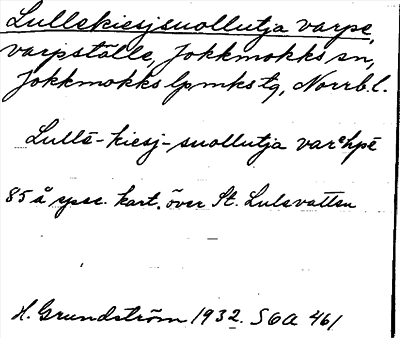 Lullekiesjsuollutja varpe,
varpställe, Jokkmokks sn,
Jokkmokks lpmks tg, Norrb. l.
Lullē-kiesj-suollutja varᵉhpē
85 å spec. kart. över St. Lulevatten
H. Grundström 1932. SOA 461